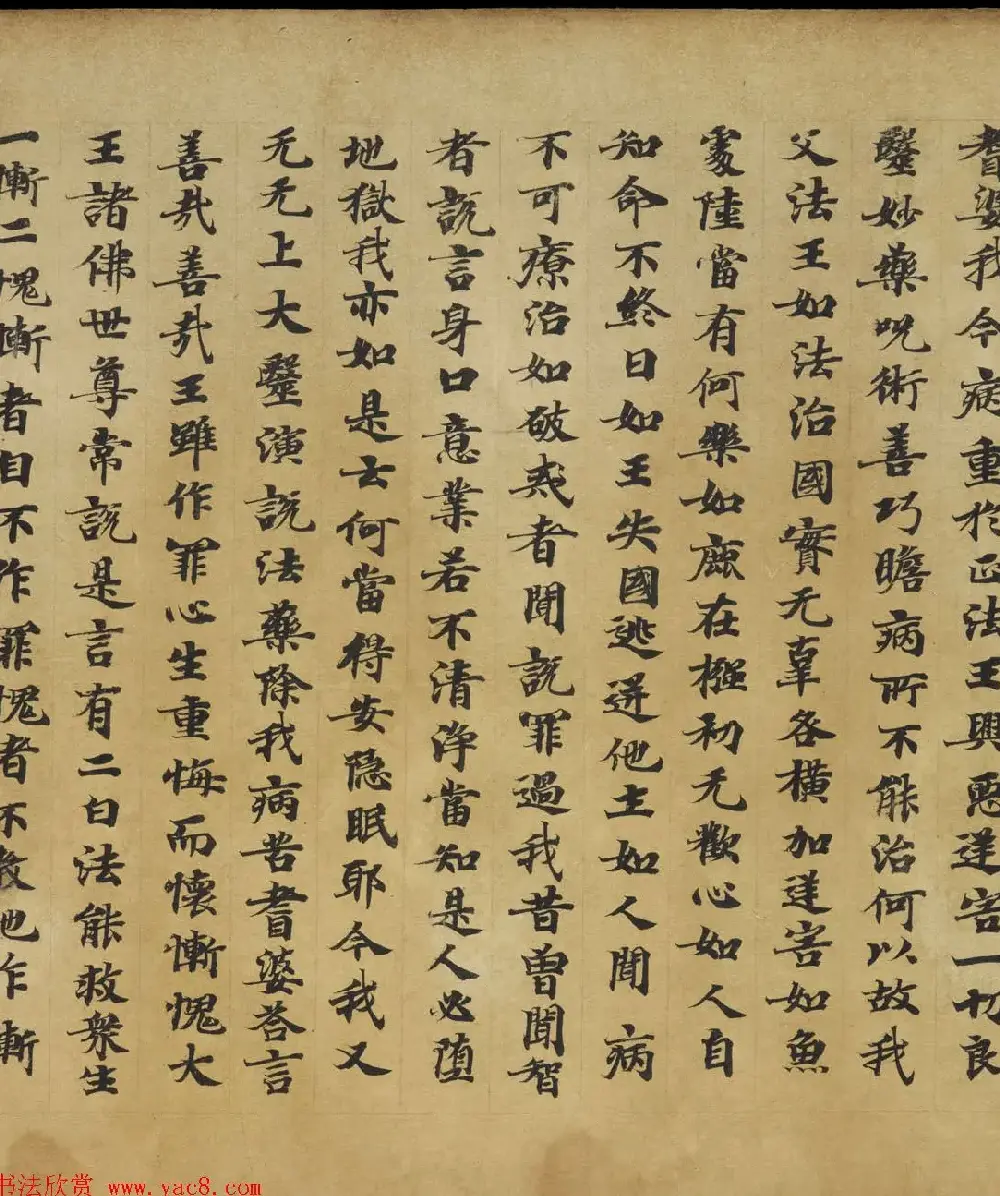 耆婆我今病重於正法王興惡逆害一切良
毉妙藥呪術善巧瞻病所不能治何以故我
父法王如法治國實无辜咎橫加逆害如魚
處陸當有何樂如鹿在𢷤初无歡心如人自
知命不終日如王失國逃迸他土如人聞病
不可療治如破戒者聞說罪過我昔曾聞智
者說言身口意業若不清淨當知是人必墮
地獄我亦如是云何當得安隱眠耶今我又
无无上大毉演說法藥除我病苦耆婆答言
善哉善哉王雖作罪心生重悔而懷慚愧大
王諸佛世尊常說是言有二白法能救衆生
一慚二愧慚者自不作罪愧者不教他作慚
书法欣赏 www.yac8.com